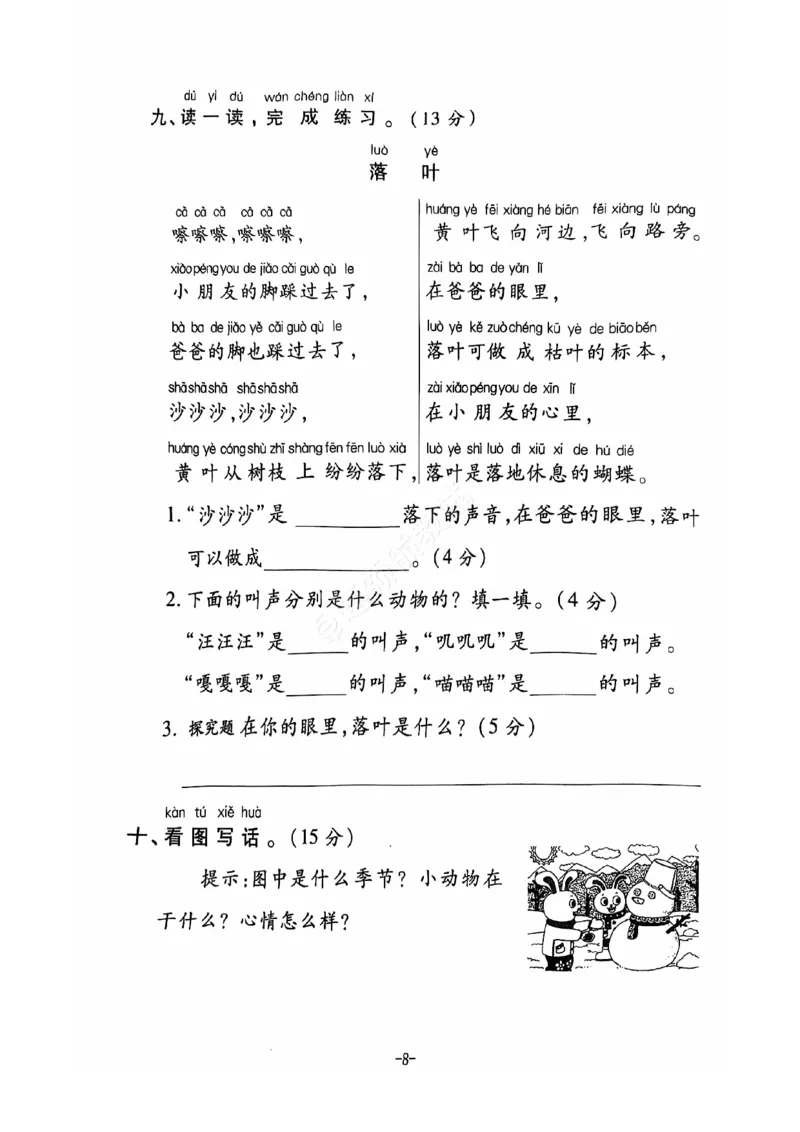 dú yì dú wán chéng liàn xí
九、读一读，完成练习。(13分)
luò yè
落叶
cā cā cā cā cā cā
嚓嚓嚓,嚓嚓嚓,
xiǎo péng you de jiǎo cǎi guò qù le
小朋友的脚踩过去了,
bà ba de jiǎo yě cǎi guò qù le
爸爸的脚也踩过去了,
shā shā shā shā shā shā
沙沙沙,沙沙沙,
huáng yè cóng shù zhī shàng fēn fēn luò xià
黄叶从树枝上纷纷落下,
huáng yè fēi xiàng hé biān fēi xiàng lù páng
黄叶飞向河边,飞向路旁。
zài bà ba de yǎn lǐ
在爸爸的眼里,
luò yè kě zuò chéng kū yè de biāo běn
落叶可做成枯叶的标本,
zài xiǎo péng you de xīn lǐ
在小朋友的心里,
luò yè shì luò dì xiū xi de hú dié
落叶是落地休息的蝴蝶。
1.“沙沙沙”是________落下的声音,在爸爸的眼里,落叶
可以做成____________。(4分)
2.下面的叫声分别是什么动物的？填一填。(4分)
“汪汪汪”是_____的叫声,“叽叽叽”是_____的叫声。
“嘎嘎嘎”是_____的叫声,“喵喵喵”是_____的叫声。
3. 探究题 在你的眼里,落叶是什么？(5分)
kàn tú xiě huà
十、看图写话。(15分)
提示:图中是什么季节？小动物在
干什么？心情怎么样？
-8-